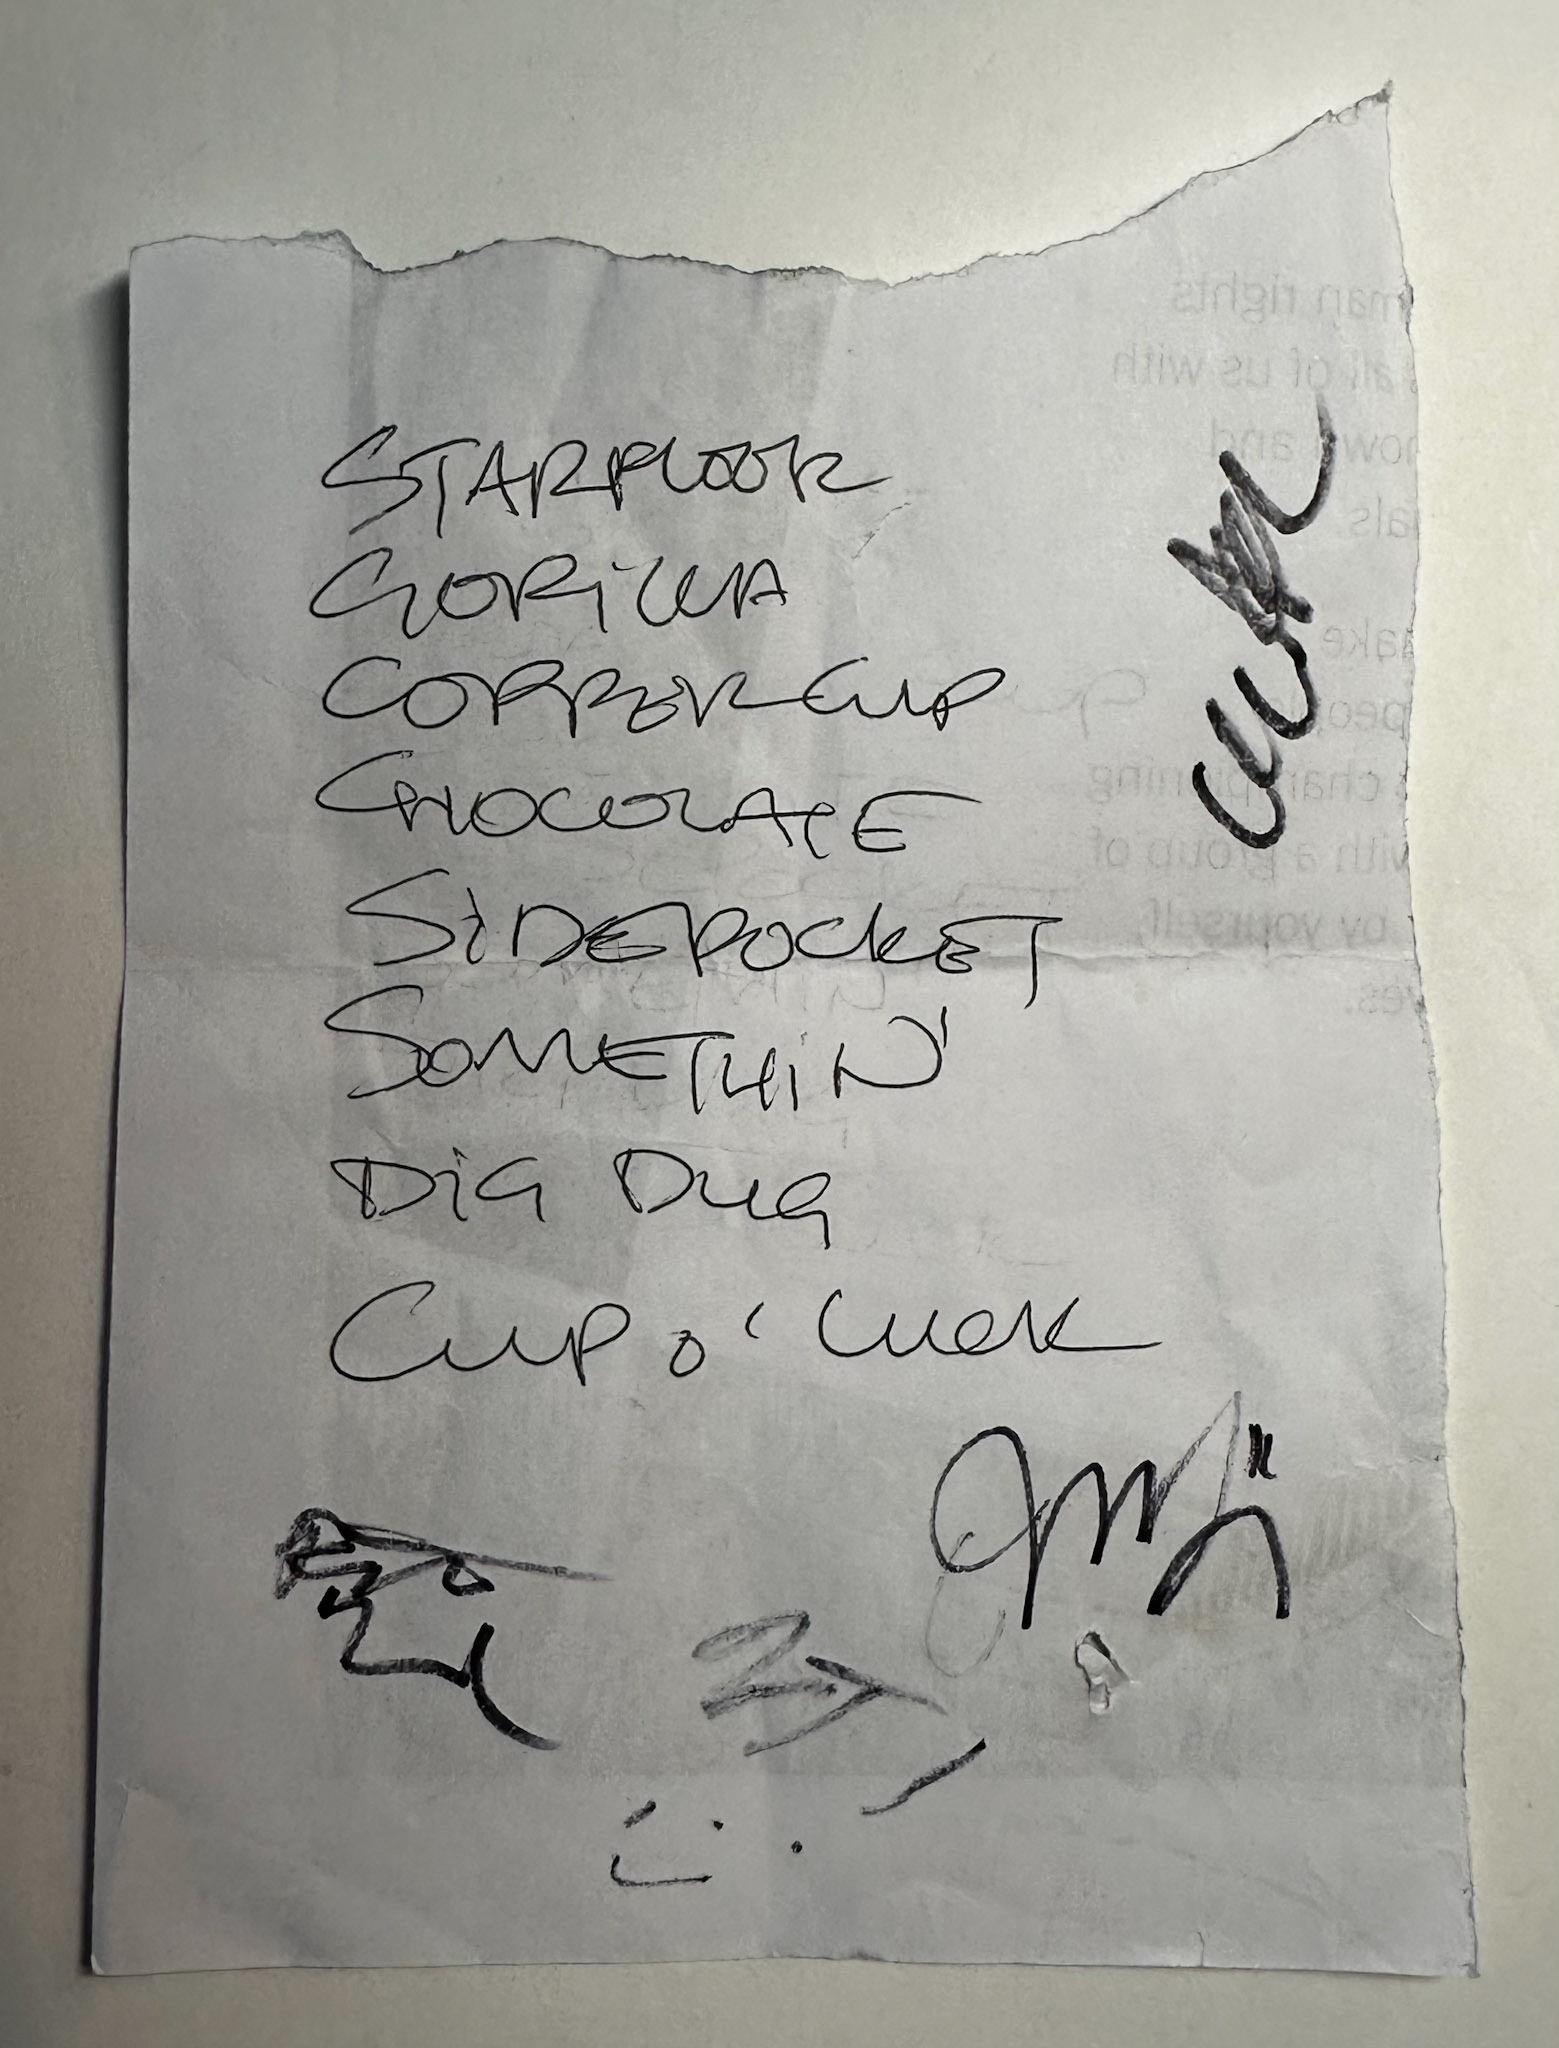 STARPLOOR
GORiLLA
COPPERCUP
CHOCOLATE
SiDEPOCKET
SOMETHiN'
DiG DUG
CUP O' LUCK
man rights
all of us with
and
als.
ake
peop
championing
with a group of
by yourself,
ves.